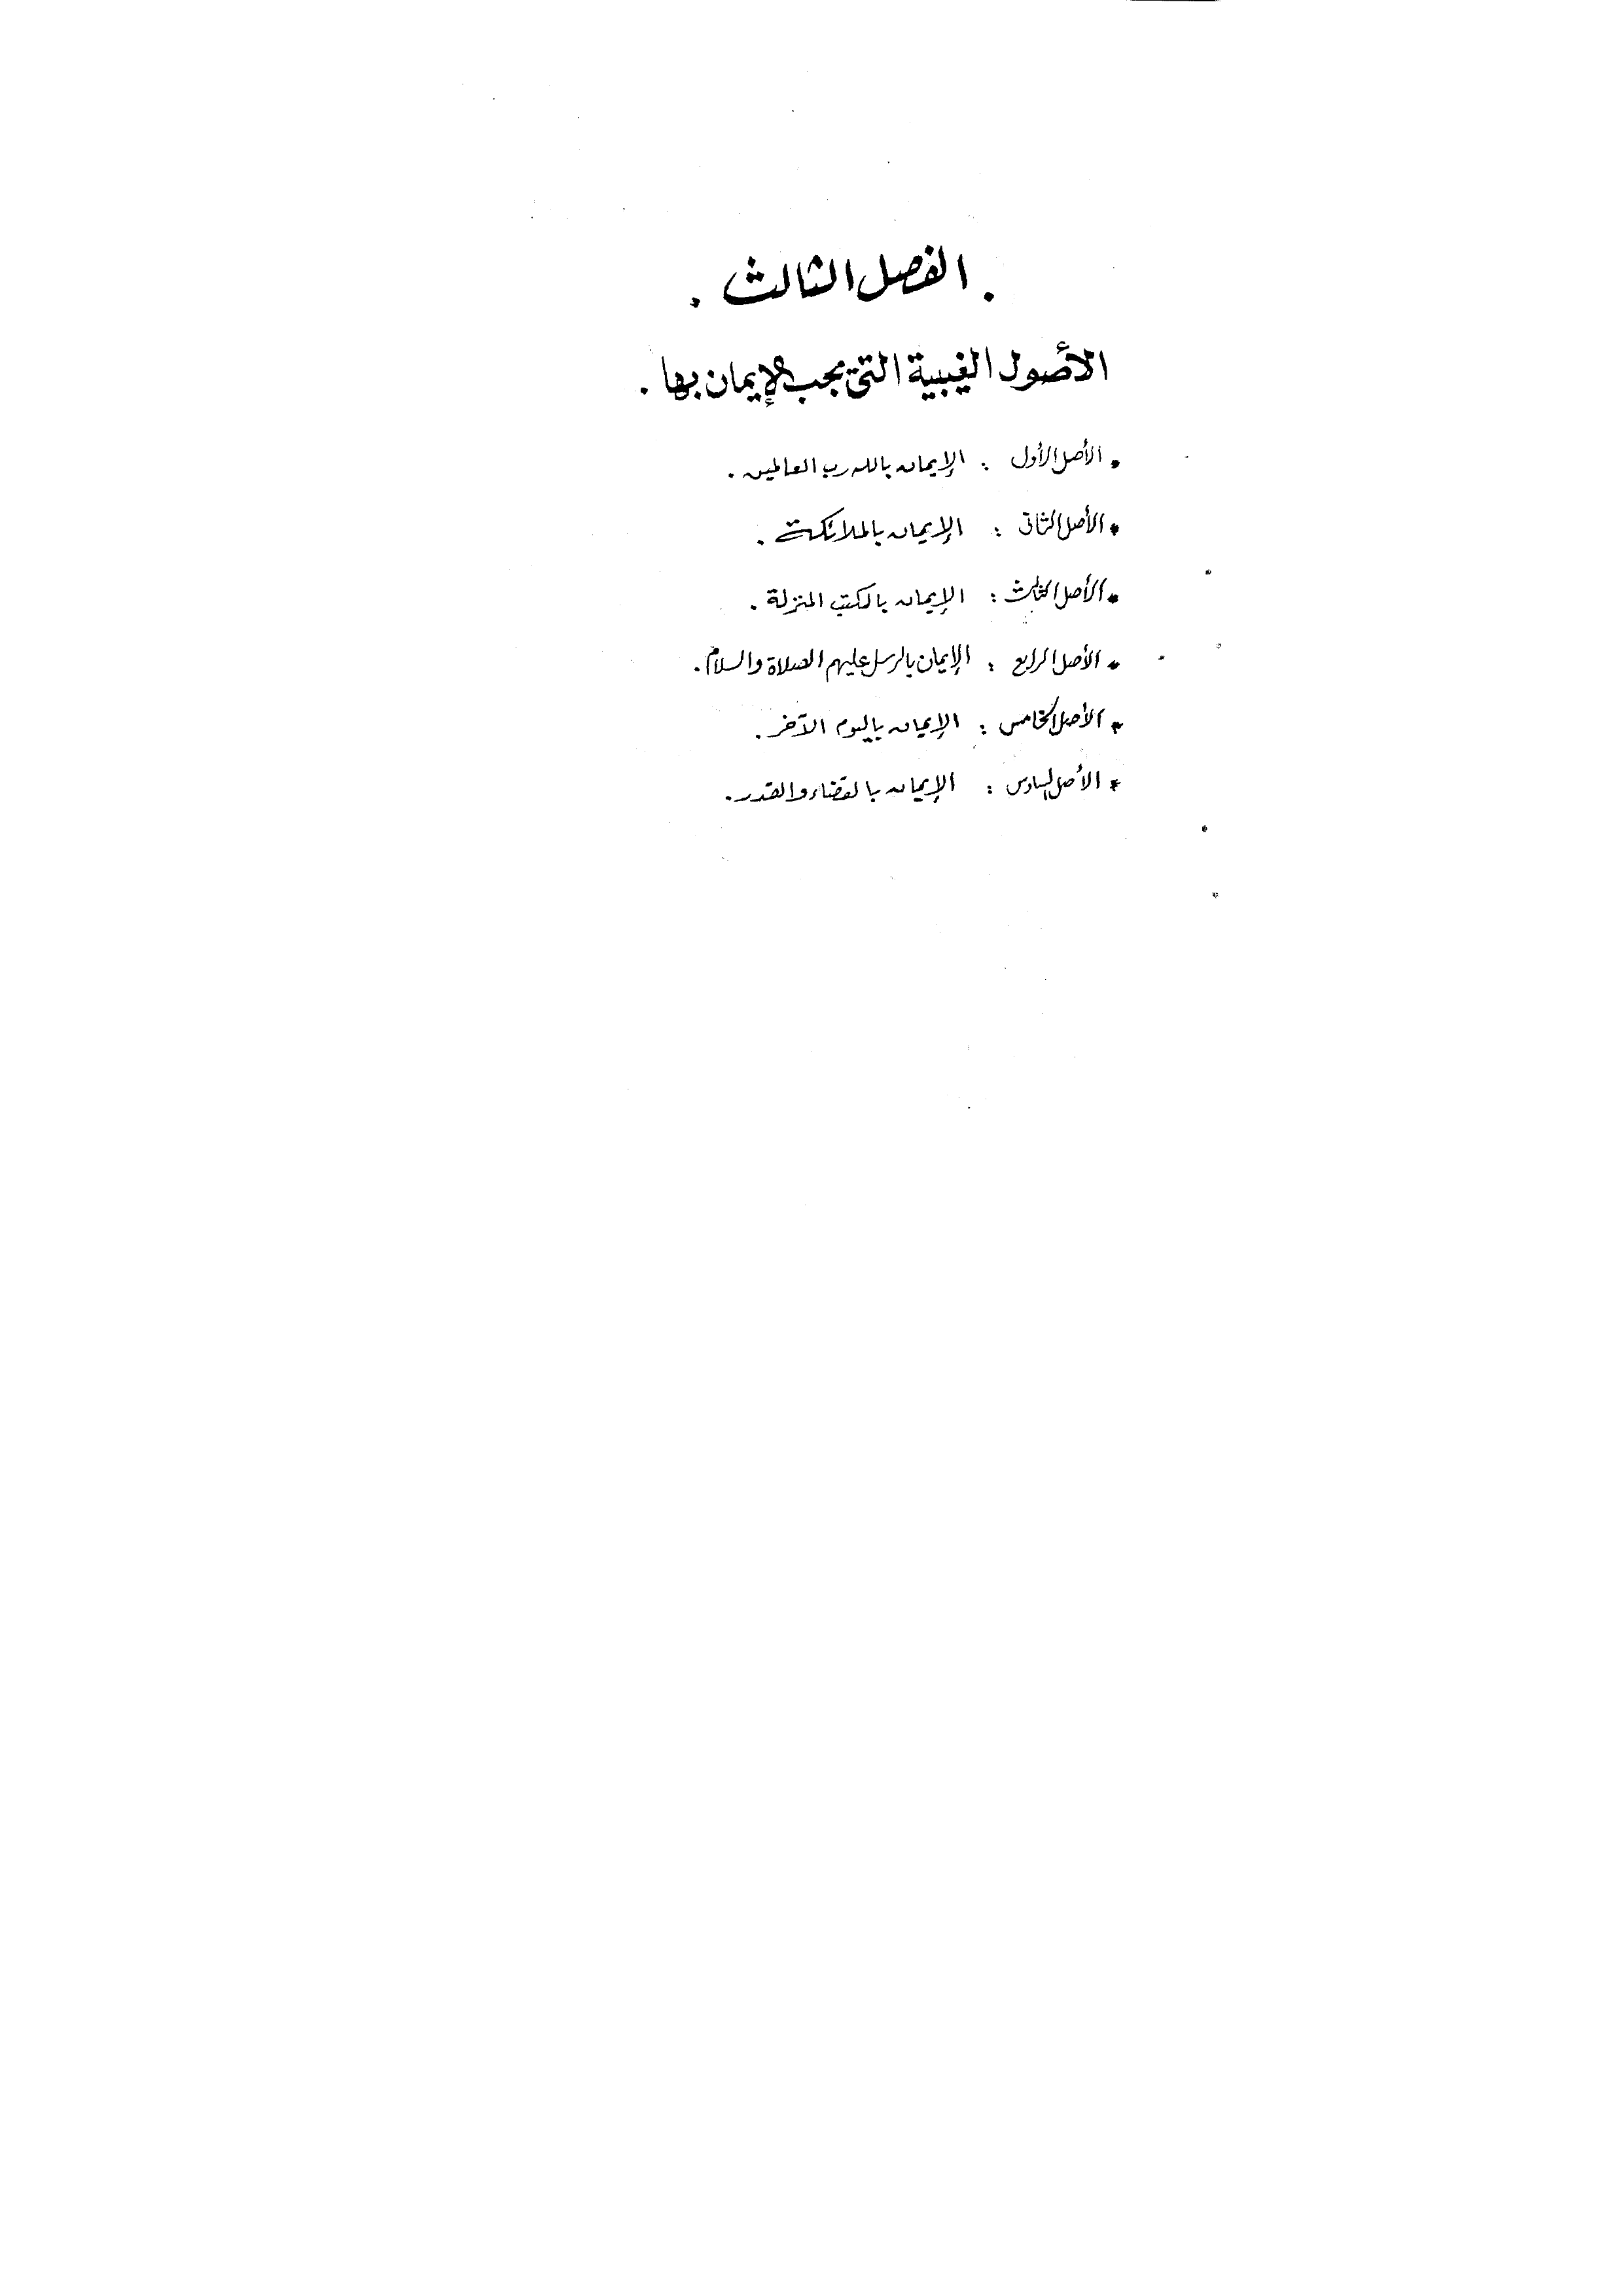 . الفصل الثالث .
الأصول الغيبية التي يجب الإيمان بها .
* الأصل الأول : الإيمان بالله رب العالمين .
* الأصل الثاني : الإيمان بالملائكة .
* الأصل الثالث : الإيمان بالكتب المنزلة .
* الأصل الرابع : الإيمان بالرسل عليهم الصلاة والسلام .
* الأصل الخامس : الإيمان باليوم الآخر .
* الأصل السادس : الإيمان بالقضاء والقدر .